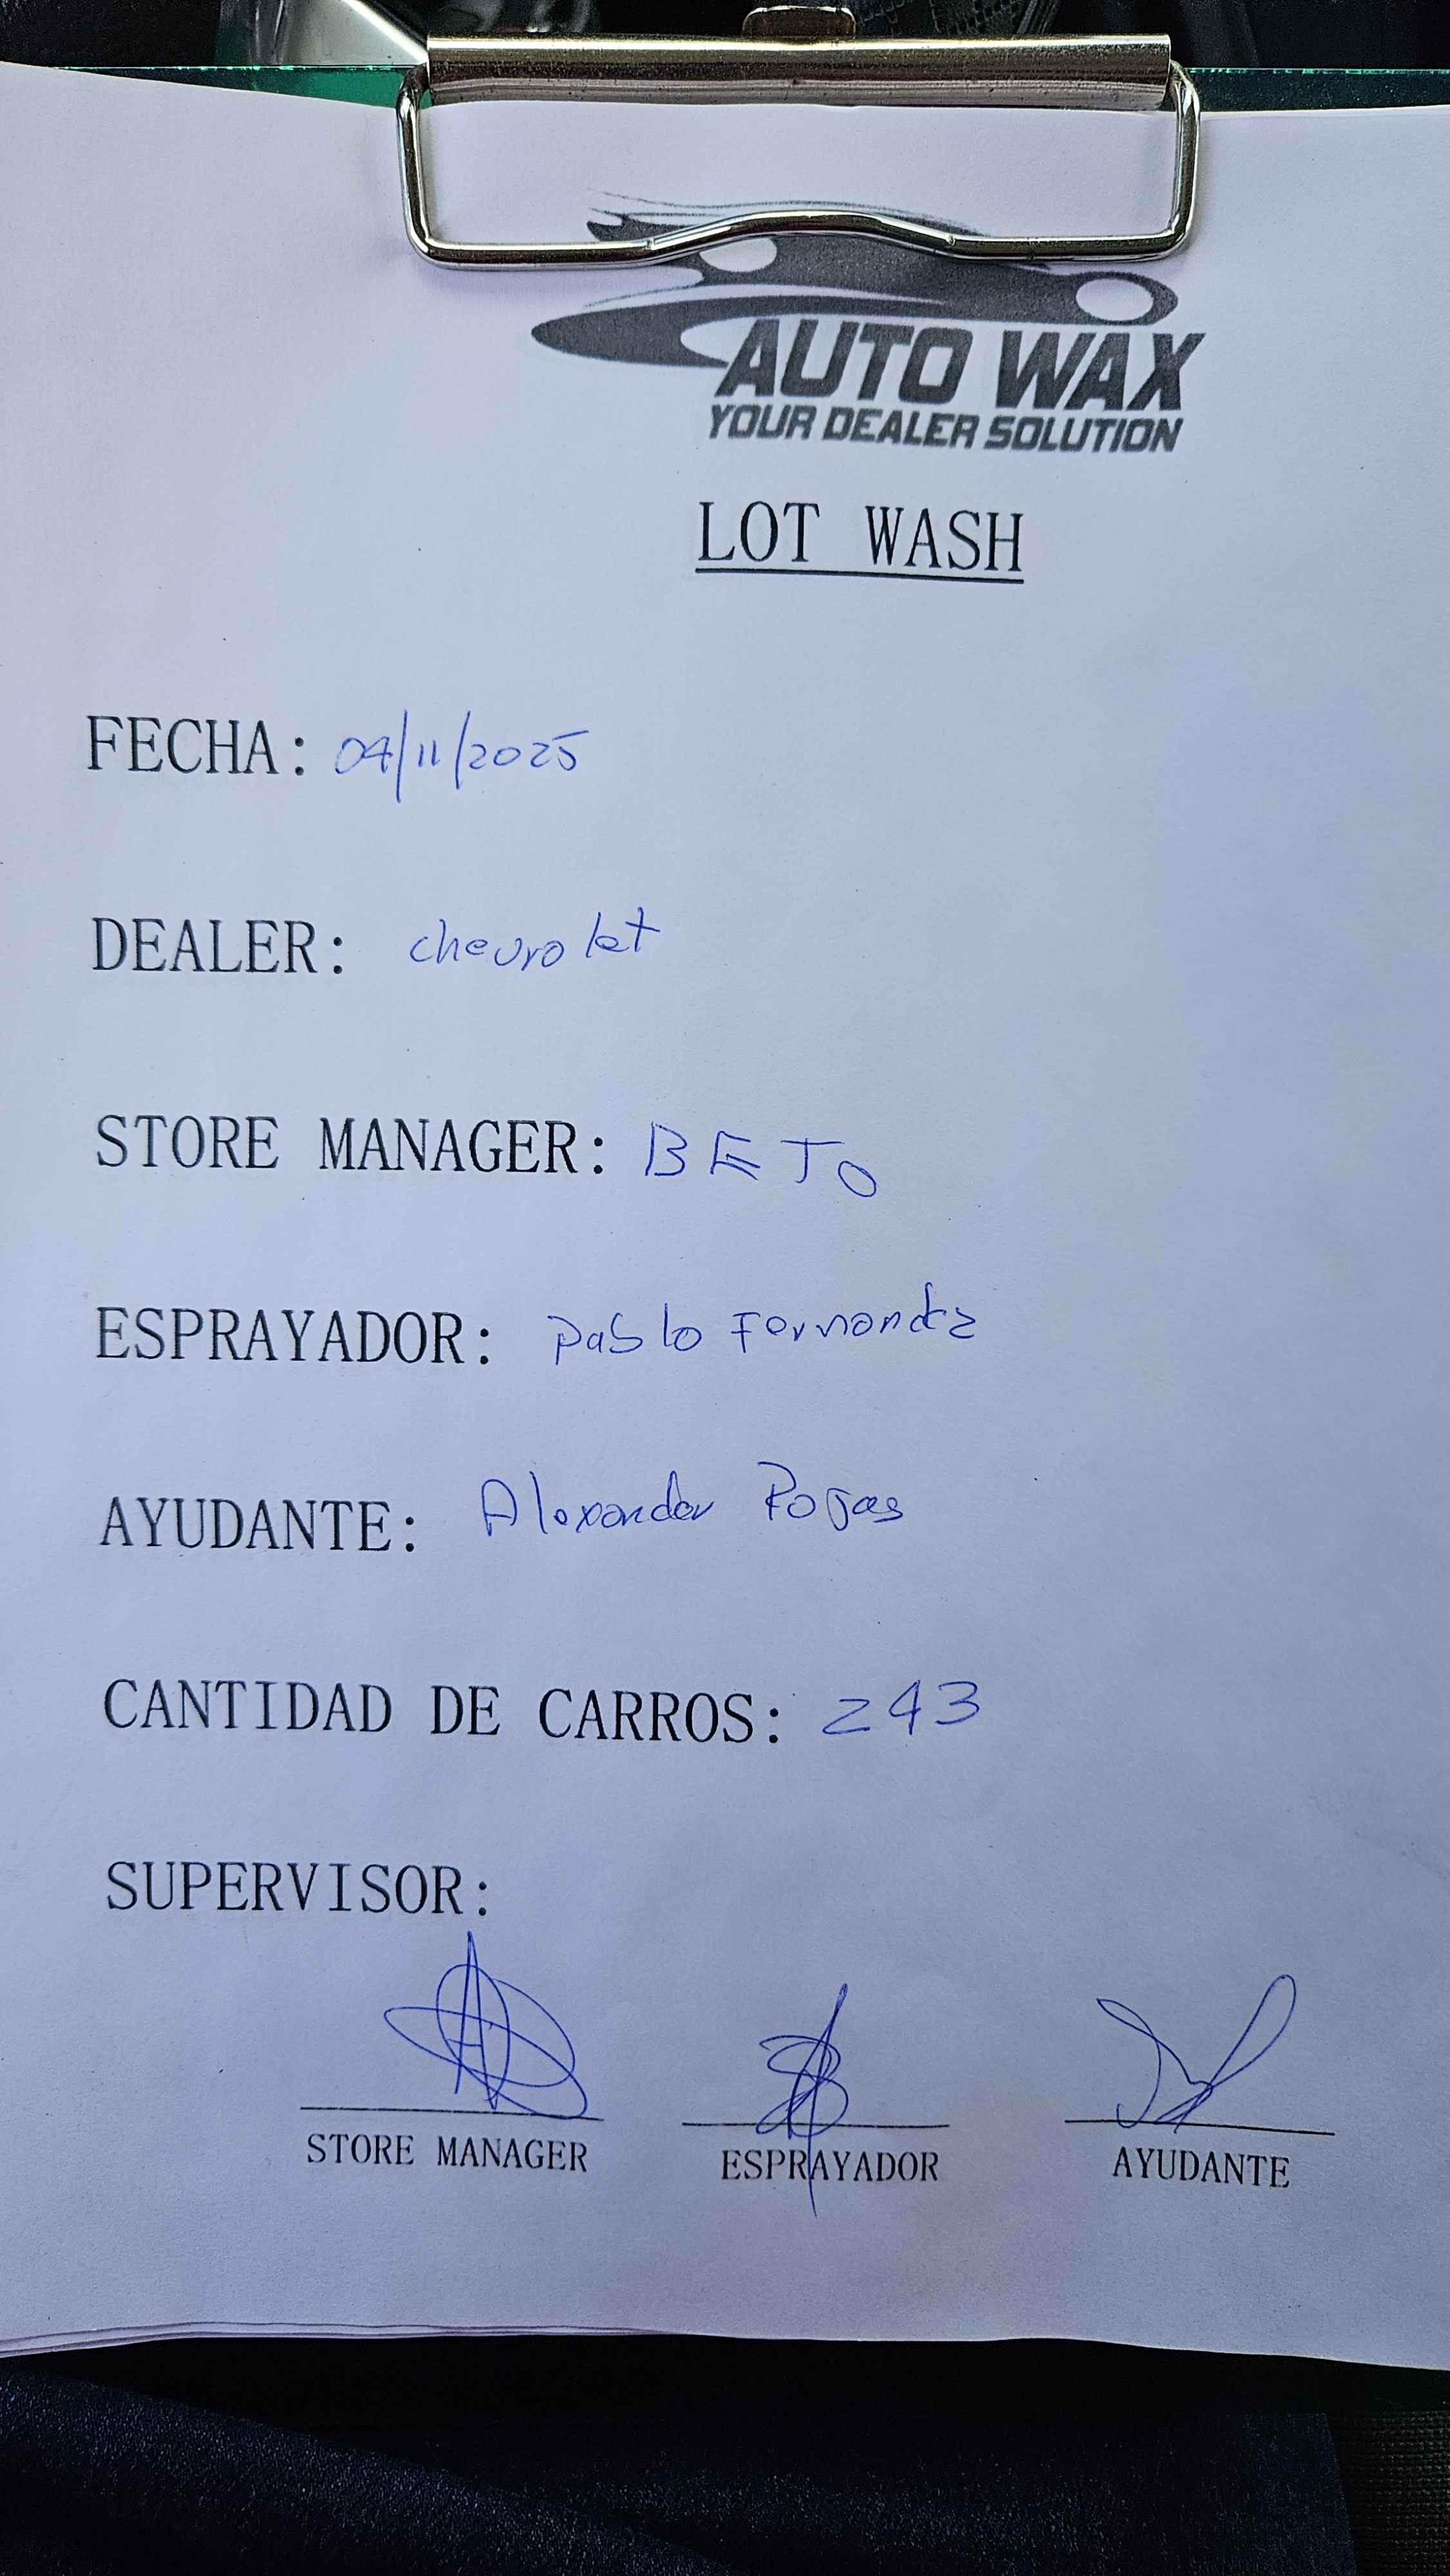 AUTO WAX
YOUR DEALER SOLUTION
LOT WASH
FECHA: 04/11/2025
DEALER: chevrolet
STORE MANAGER: BETO
ESPRAYADOR: Pablo Fernandz
AYUDANTE: Alexander Rojas
CANTIDAD DE CARROS: 243
SUPERVISOR:
STORE MANAGER ESPRAYADOR AYUDANTE